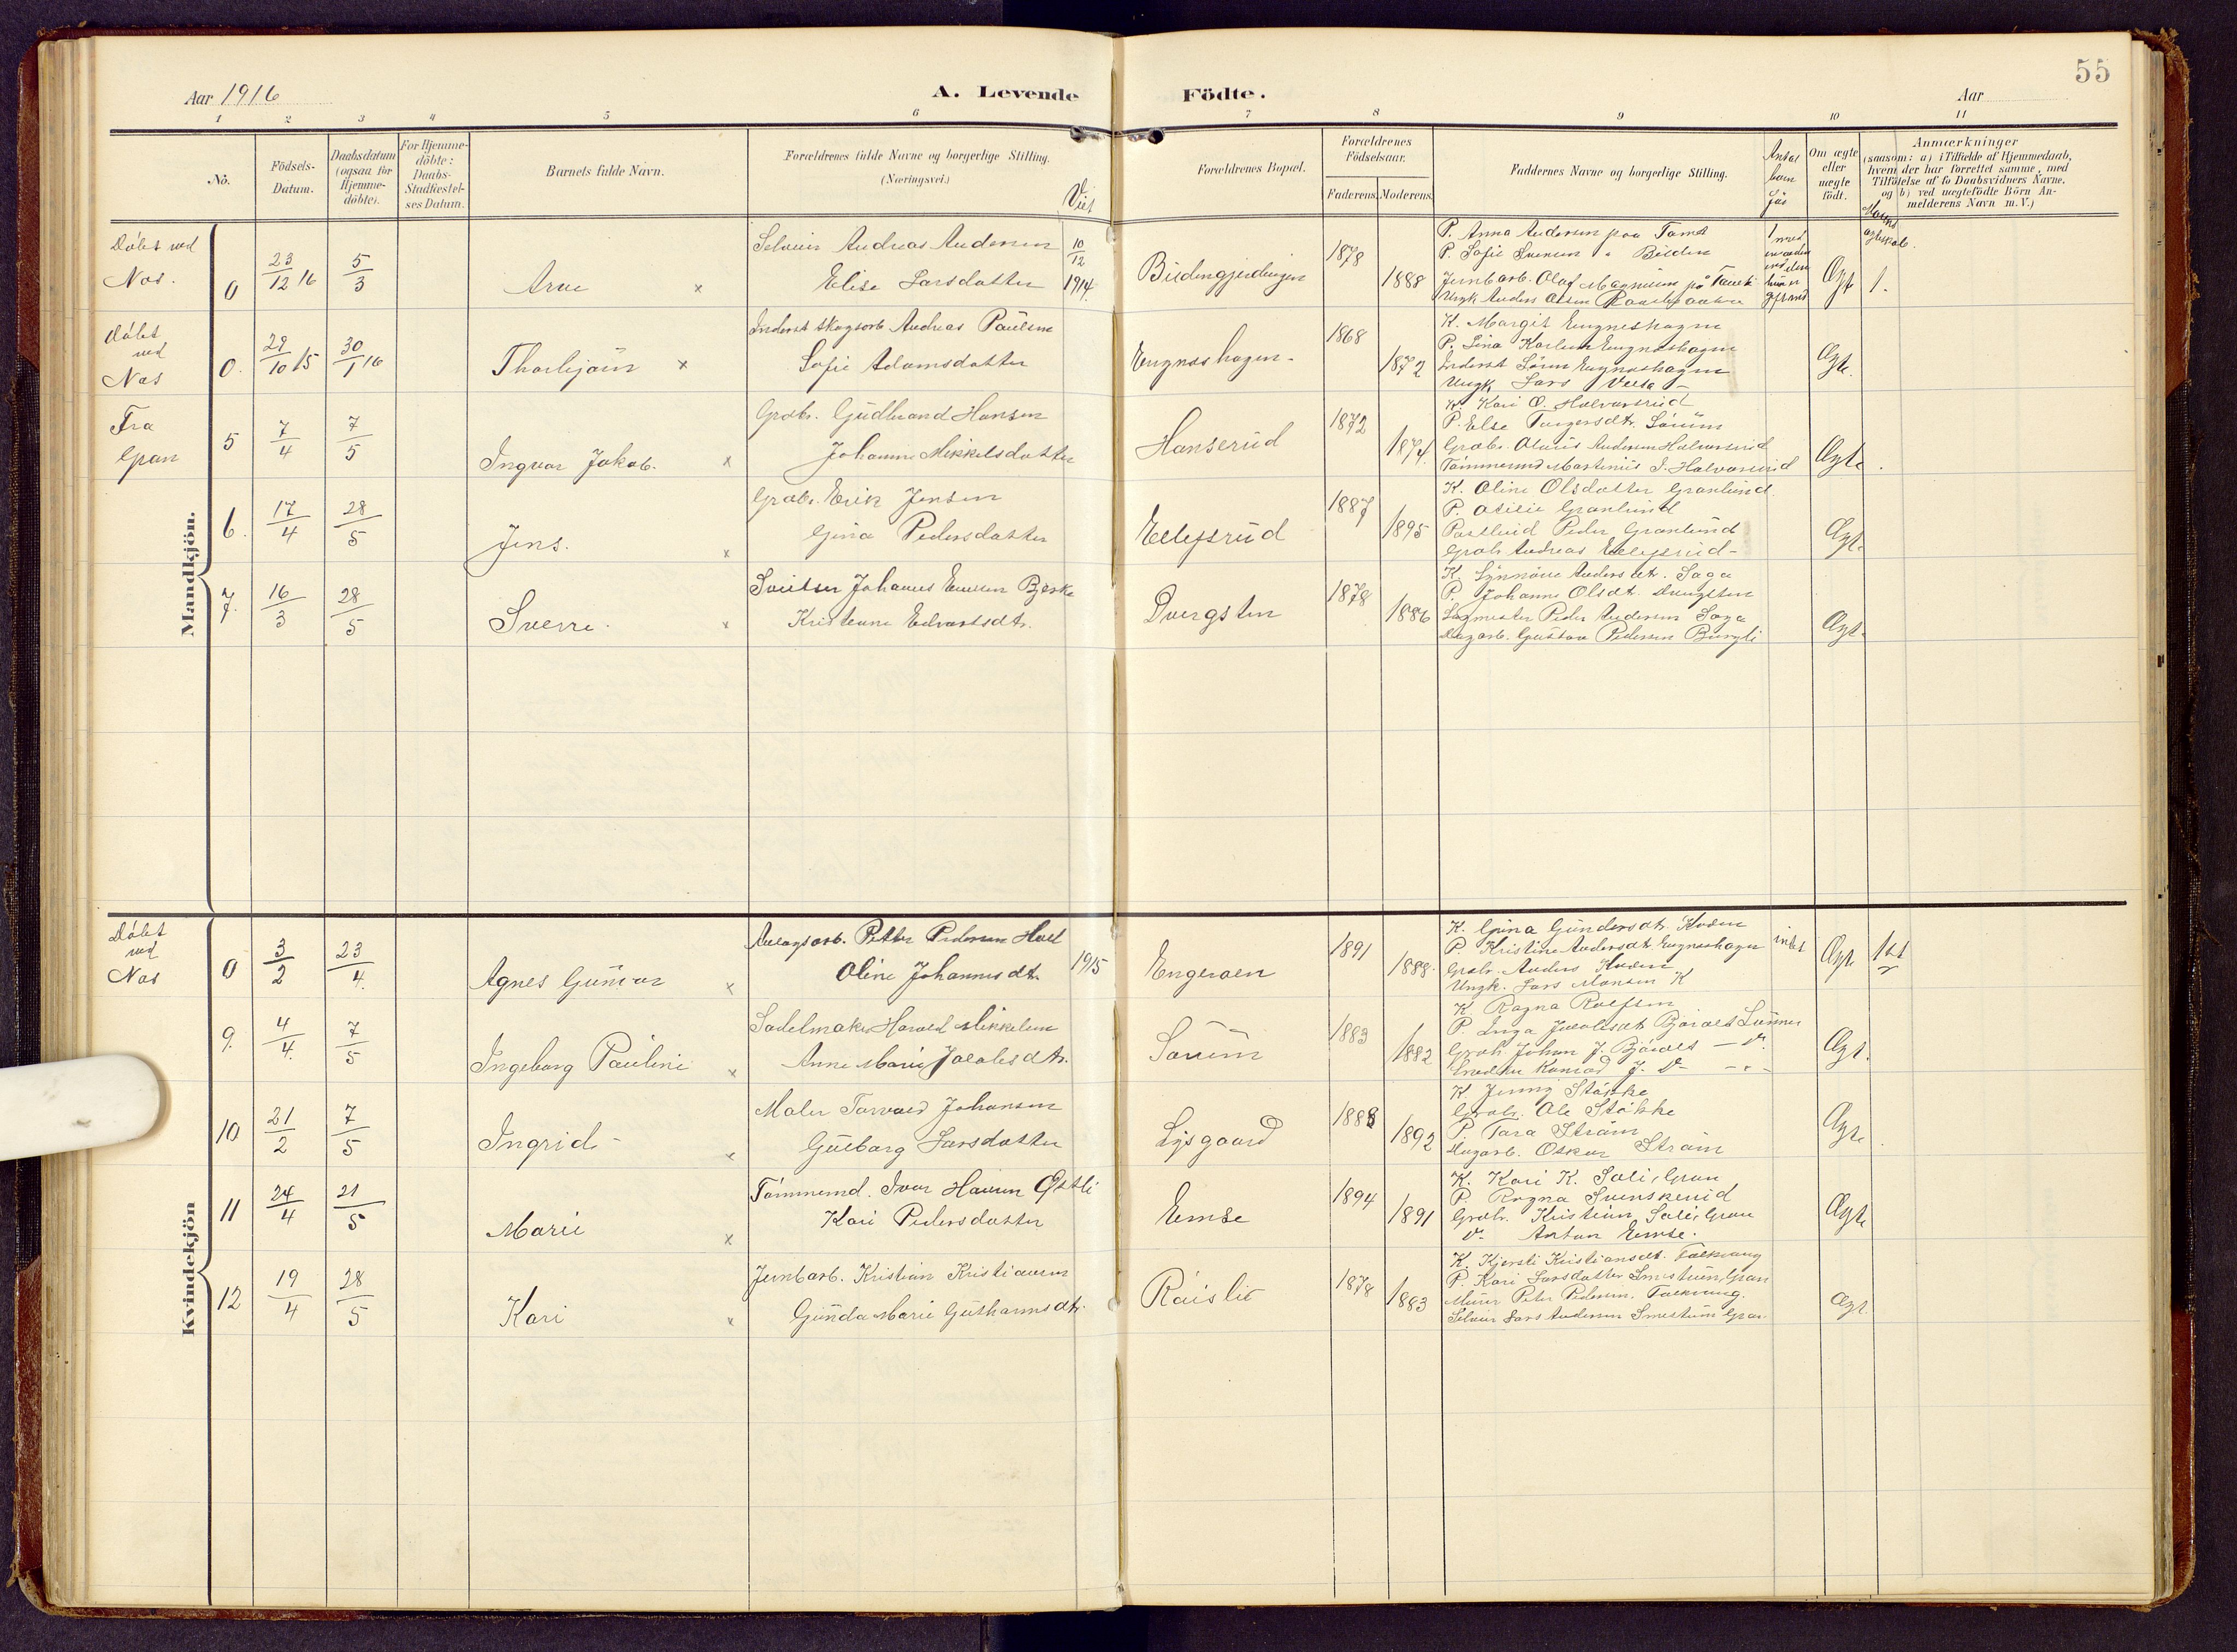 55
Aar 1916
A. Levende
Födte.
Aar
1 2 3 4 5 6 7 8 9 10 11
No.
Födsels-Datum.
Daabsdatum (ogsaa for Hjemme-döbte).
For Hjemme-döbte: Daabs-Stadfæstel-ses Datum.
Barnets fulde Navn.
Forældrenes fulde Navne og borgerlige Stilling.
(Næringsvei.)
Viet
Forældrenes Bopæl.
Forældrenes Födselsaar.
Faderens.
Moderens.
Faddernes Navne og borgerlige Stilling.
Antal barn
Om ægte eller uægte født.
Anmærkninger
(saasom: a) i Tilfælde af Hjemmedaab,
hvem der har forrettet samme, med
Tilföielse af to Daabsvidners Navne,
og b) ved uægtefödte Börn An-
melderens Navn m. V.)
Mandkjön.
Döbt ved
Nas.
0
23/12 16
5/3
Arne
Andreas Andersen
Elise Larsdatter
10/12
1914
1878
1888
P. Anna Andersen paa
P. Sofie
Jernbarb. Olaf Magnusen
Ungk Anders Olsen
Ægt
1.
Døbt
ved
Nas
0.
29/10 15
30/1 16
Thorbjørn
Inderst skogsarb Andreas Paulsen
Sofie Adamsdatter
Engnashagen
1868
1872
K. Margit Engneshagen
P. Lina Karlsen Engnashagen
Inderst Sören Engnashagen
Ungk Lars
Ægte.
Fra
Gran
5
7/4
7/5
Ingvar Jakob.
Grdbr. Gudbrand Hansen
Johanne Mikkelsdatter
Hanserud
1872
1874
K. Kari O. Halvorsrud
P. Else Torgersdtr. Sörum
Grdbr. Olaus Andersen Halvorsrud
Tömmermd Martinius J. Halvorsrud
Ægte
6.
17/4
28/5
Jens.
Grdbr. Erik Jensen
Gina Pedersdatter
Eelifsrud
1887
1895
K. Oline Olsdatter Granlund
P. Otilie Granlund
Postbud Peder Granlund
Grdbr Andreas Eelifsrud
Ægt.
7.
16/3
28/5
Sverre.
Johannes Evensen Bjerke
Kristiane Edvartsdtr.
Dvergsten
1878
1886
K. Synnöve Andersdtr. Saga
P. Johanne Olsdt. Dvergsten
Sagmester Peder Andersen Saga
Dagarb. Gustav Pedersen Bergli
Ægt.
Kvindekjön
Döbt
ved
Nas
0
3/2
23/4
Agnes Gunvor
Anlægsarb. Petter Pedersen Hval
Oline Johannesdt.
1915
Engeroen
1891
1888.
K. Gina Gundersdt. Hoden
P. Kristine Andersdt Engneshagen
Grdbr. Anders Hoden
Ungk. Lars Monsen K
intet
Ægt
1st
9.
4/4.
7/5
Ingeborg Pauline
Sadelmaker Harald Mikkelsen
Anne Marie Jacobsdtr.
Sörum
1883
1882
K. Ragna Rolfsen
P. Inga Jacobsdt Björalt Lunner
Grdbr Johan J. Björalt — D.
Snedker Konrad J. D — " —
Ægt.
10
21/2
7/5
Ingrid
Maler Torvald Johansen
Gulborg Larsdatter
Lysgaard
1888
1892
K. Jenny Støkke
Grdbr. Ole Støkke
P. Tora Ström
Dagarb. Oskar Ström
Ægte
11
24/4
21/5
Marie
Tömmermd. Ivar Hansen Østli
Kari Pedersdatter
Emse
1894
1891
K. Kari K. Soli, Gran
P. Ragna Svenskerud
Grdbr. Kristian Soli, Gran
D. Anton Emse.
Ægte
12
19/4
28/5
Kari
Jernbarb. Kristian Kristiansen
Gunda Marie Guthormsdtr.
Raislio
1878
1883
K. Kjersti Kristiansdt. Falkvang
P. Kari Larsdatter Smestuen, Gran
Murer Peter Pedersen, Falkvang.
Selveier Lars Andersen Smestuen Gran
Ægt.